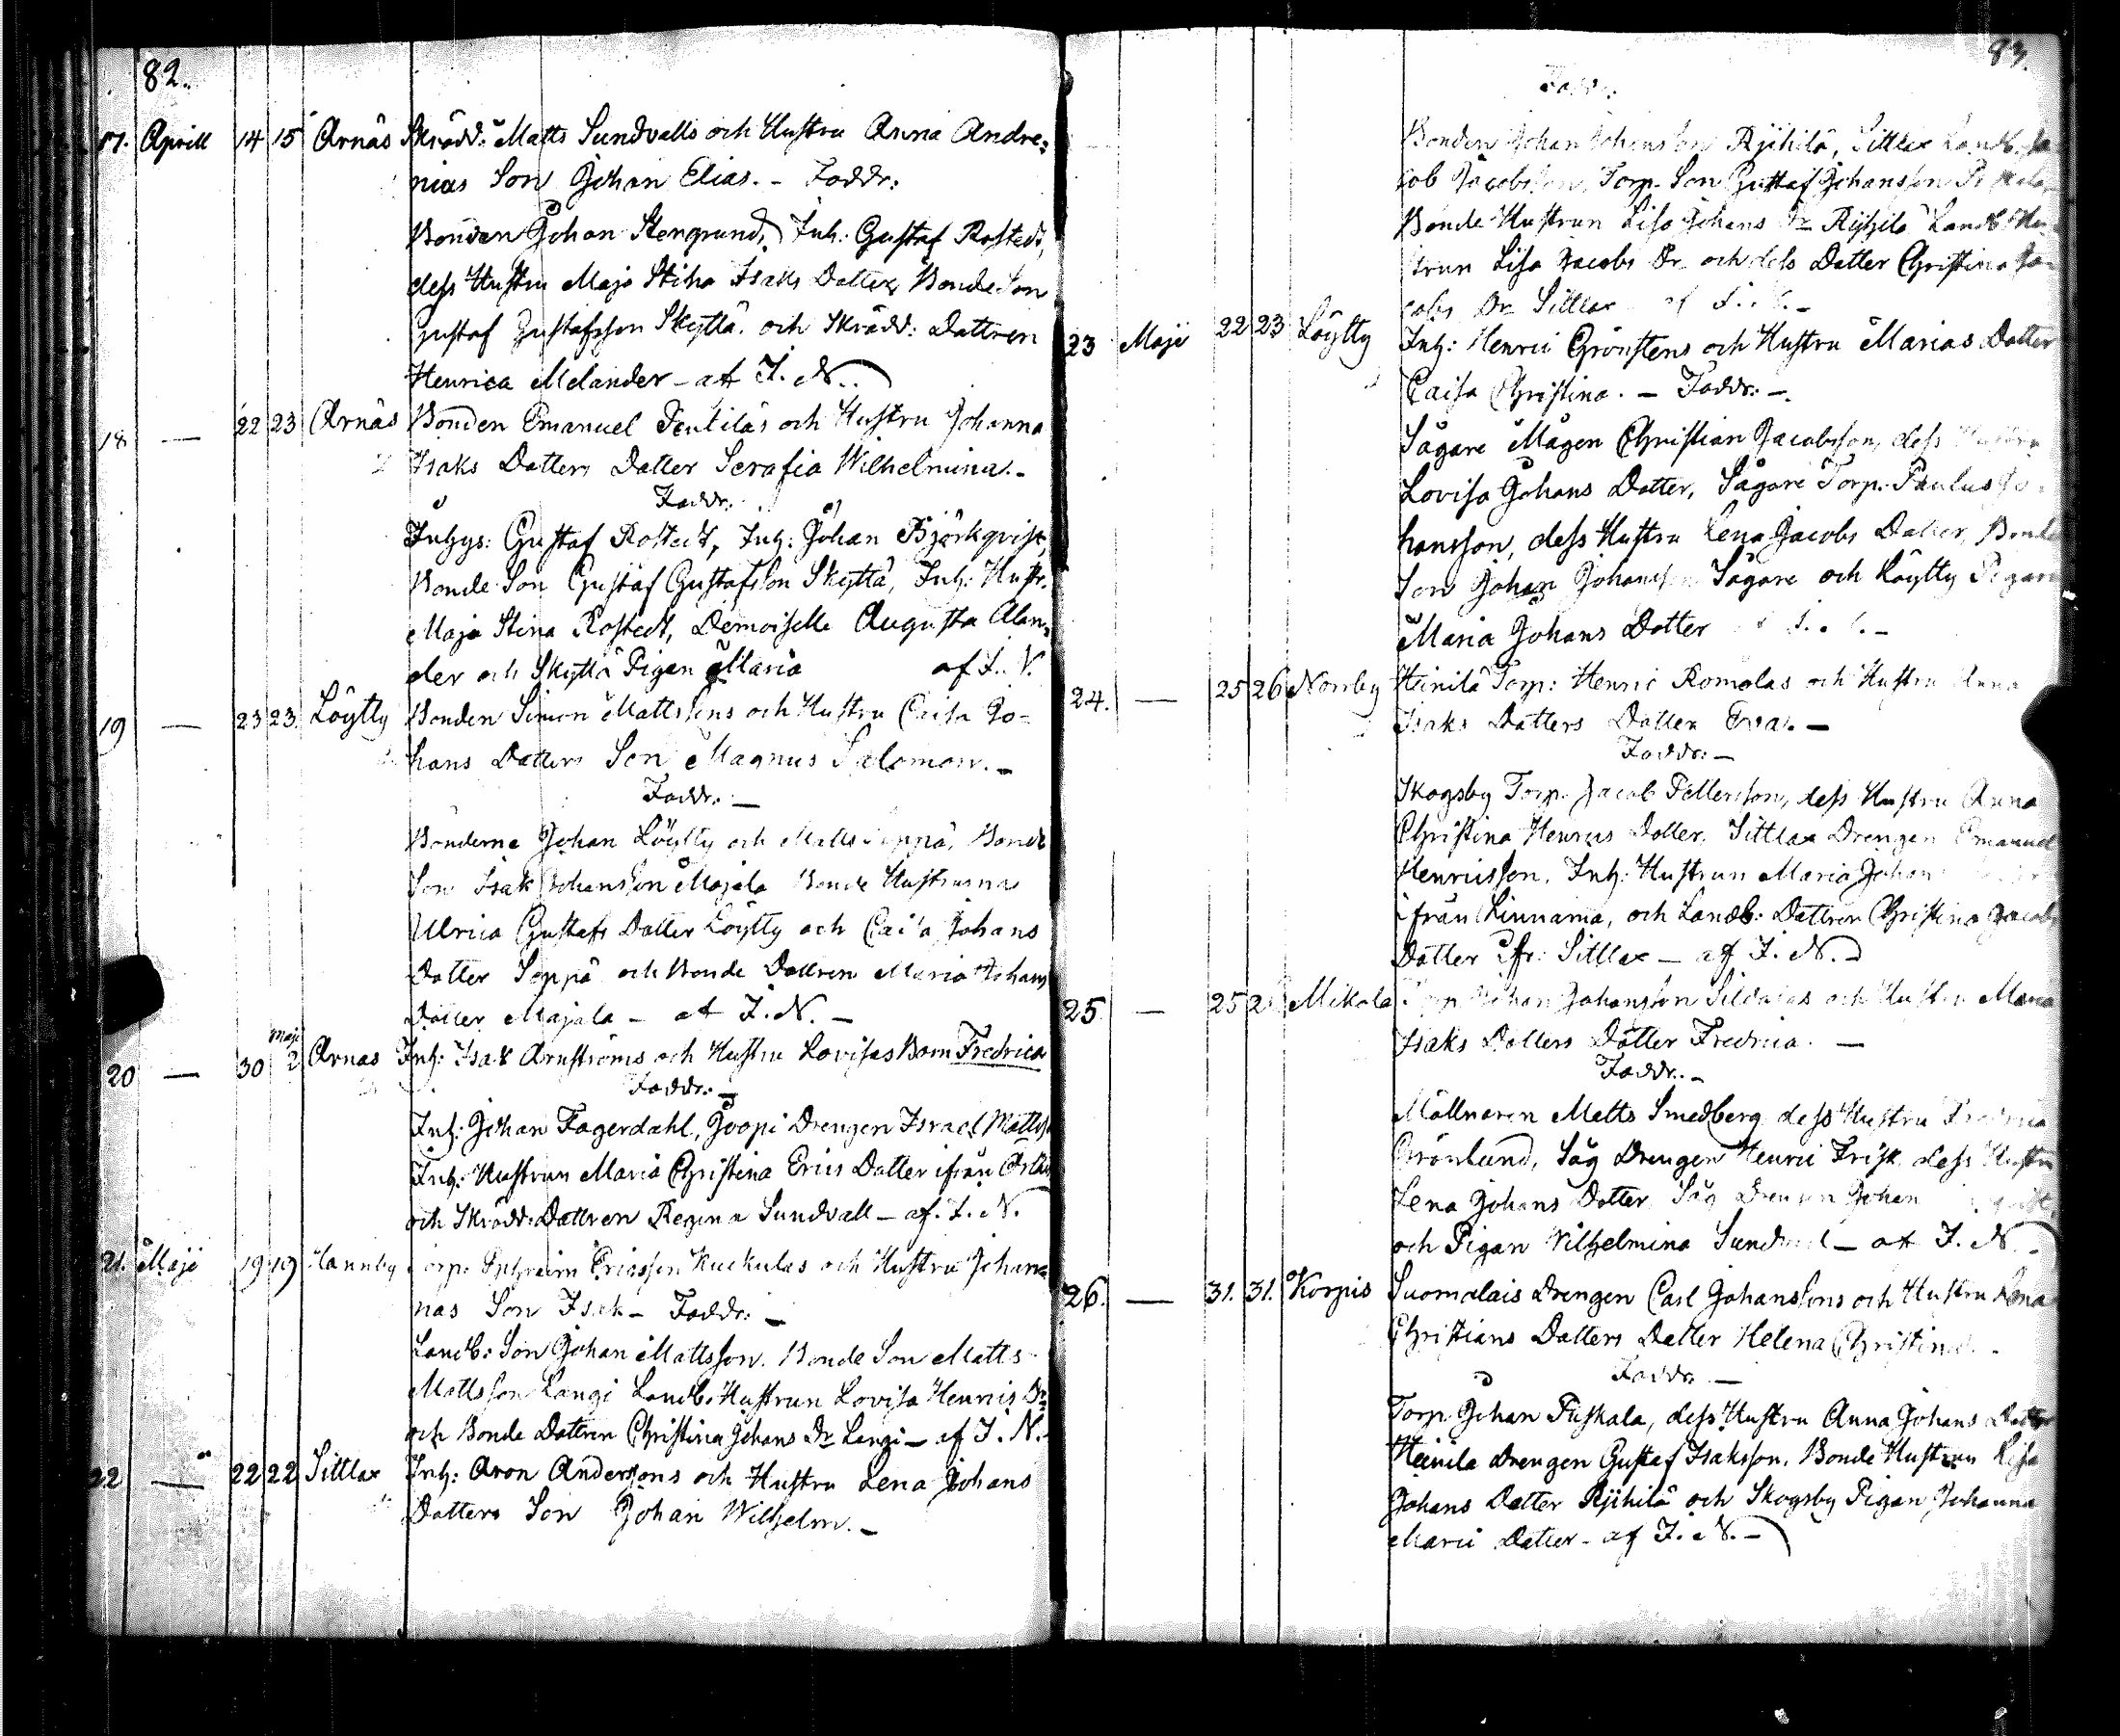 82.
17. Aprill 14 15 Arnäs Skrädd: Matts Sundvalls och Hustru Anna Andre:
nias Son Johan Elias. - Faddr:
Bonden Johan Stengrund, Inh: Gustaf Rostedt,
dess Hustru Maja Stina Isaks Datter, Bonde Son
Gustaf Gustafsson Skyttä. och Skrädd: Dattren
Henrica Melander - af I. N.
18 — 22 23 Arnäs Bonden Emanuel Pentiläs och Hustru Johanna
Isaks Datters Datter Serafia Wilhelmina. -
Faddr:
Inhys: Gustaf Rostedt, Inh: Johan Björkqvist,
Bonde Son Gustaf Gustafsson Skyttä, Inh: Hustr.
Maja Stina Rostedt, Demoiselle Augusta Alan:
der och Skyttä Pigan Maria af I. N.
19 — 23 23. Löytty Bonden Simon Mattssons och Hustru Caisa Jo-
hans Datters Son Magnus Salomon. -
Faddr: —
Bönderna Johan Löytty och Matts Soppä, Bonde
Son Isak Johansson Majala Bonde Hustrurna
Ulrica Gustafs Datter Löytty och Caisa Johans
Datter Soppä och Bonde Dattren Maria Johans
Datter Majala - af I. N. -
20 — 30 Maji 2 Arnäs Inh: Isak Arnströms och Hustru Lovisas Barn Fredrica
Faddr: -
Inh: Johan Fagerdahl, Joopi Drengen Israel Mattss
Inh: Hustrun Maria Christina Erics Datter ifrån
och Skrädd: Dattren Regina Sundvall - af. I. N.
21. Maji 19 19 Hannby Torp: Ephraim Ericsson Kuckulas och Hustru Johan
nas Son Isak - Faddr: -
Landb: Son Johan Mattsson. Bonde Son Matts
Mattsson Langi Landb. Hustrun Lovisa Henrics Dr
och Bonde Dattren Christina Johans Dr Langi - af I. N.
22 — 22 22 Sittlax Inh: Aron Anderssons och Hustru Lena Johans
Datters Son Johan Wilhelm. -
83.
Faddr:
Bonden Johan Johansson Rjihilä, Sittlax Landb. Ja
cob Jacobsson, Torp. Son Gustaf Johansson
Bonde Hustrun Lisa Johans Dr Rjihilä Landb Hu
strun Lisa Jacobs Dr och dess Datter Christina Ja
cobs Dr Sittlax af I. N. -
23 Maji 22 23 Löytty Inh: Henric Grönstens och Hustru Marias Datter
Caisa Christina. - Faddr: -
Sågare Mågen Christian Jacobsson, dess Hustru
Lovisa Johans Datter, Sågare Torp. Paulus Jo
hansson, dess Hustru Lena Jacobs Datter, Bonde
Son Johan Johansson Sågare och Löytty Pigan
Maria Johans Datter
24. — 25 26 Norrby Heinilä Torp: Henric Romolas och Hustru Anna
Isaks Datters Datter Eva. -
Faddr: -
Skogsby Torp. Jacob Pettersson, dess Hustru Anna
Christina Henrics Datter, Sittlax Drengen Emanuel
Henricsson. Inh: Hustrun Maria Johans
från Linnama, och Landb: Dattren Christina Jacobs
Datter ifr: Sittlax - af I. N.
25 — 25 2 Mikola Torp Johan Johansson Sildalas och Hustru Maria
Isaks Datters Datter Fredrica. -
Faddr: -
Möllnaren Matts Smedberg dess Hustru Fredrica
Grönlund, Såg Drengen Henric Frisk dess Hustru
Lena Johans Datter Såg Drengen Johan
och Pigan Vilhelmina Sund - af I. N.
26. — 31. 31. Korpis Suomalais Drengen Carl Johanssons och Hustru Lena
Christians Datters Datter Helena Christina. -
Faddr: -
Torp. Johan Puskala, dess Hustru Anna Johans Datter
Heinilä Drengen Gustaf Isaksson, Bonde Hustrun Lisa
Johans Datter Rjihilä och Skogsby Pigan Johanna
Marii Datter - af I. N. -